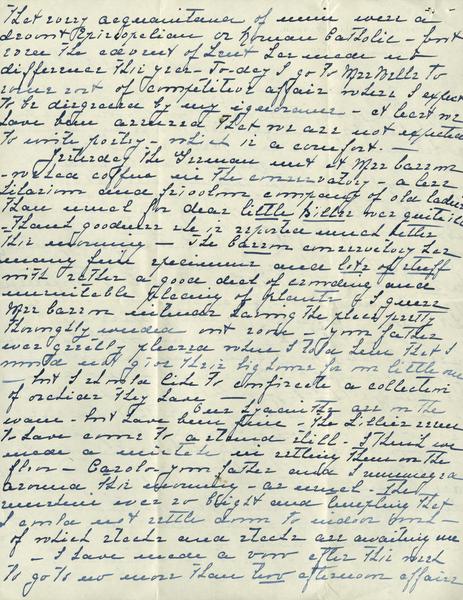 That every acquaintance of mine were a
devout Episcopalian or Roman Catholic - but
even the advent of Lent has made no
difference this year - To-day I go to Mrs Mills to
some sort of competitive affair where I expect
to be disgraced by my ignorance - at least we
have been assured that we are not expected
to write poetry which is a comfort. -
Yesterday the German met at Mrs Barrons
- we had coffee in the conservatory - a less
hilarious and frivolous company of old ladies
than usual for dear little Miller was quite ill
- Thank goodness she is reported much better
this morning - The Barron conservatory has
many fine specimens and lots of stuff
with rather a good deal of crowding and
unsuitable placing of plants & I guess
Mrs Barron intends having the place pretty
thoroughly weeded out soon - your father
was greatly pleased when I told him that I
would not give their big house for our little one
- but I should like to confiscate a collection
of orchids they have -
Our hyacinths are on the
wane - but have been fine - The lillies seem
to have come to a stand still - I think we
made a mistake in setting them on the
floor - Carolo - your father and I
around this morning - as usual - The
sunshine was so bright and tempting that
I could not settle down to indoor work -
of which stacks and stacks are awaiting me
- I have made a vow after this week
to go to no more than two afternoon affairs